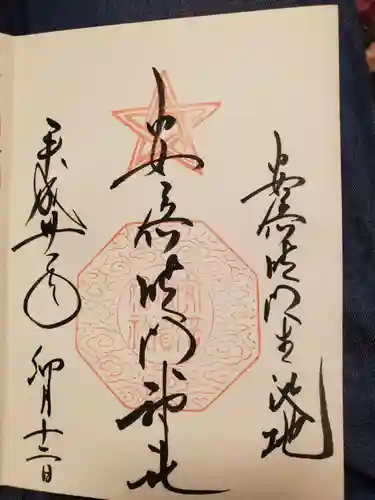 安倍晴明生誕地
安倍晴明神社
平成廿一年
卯月十二日